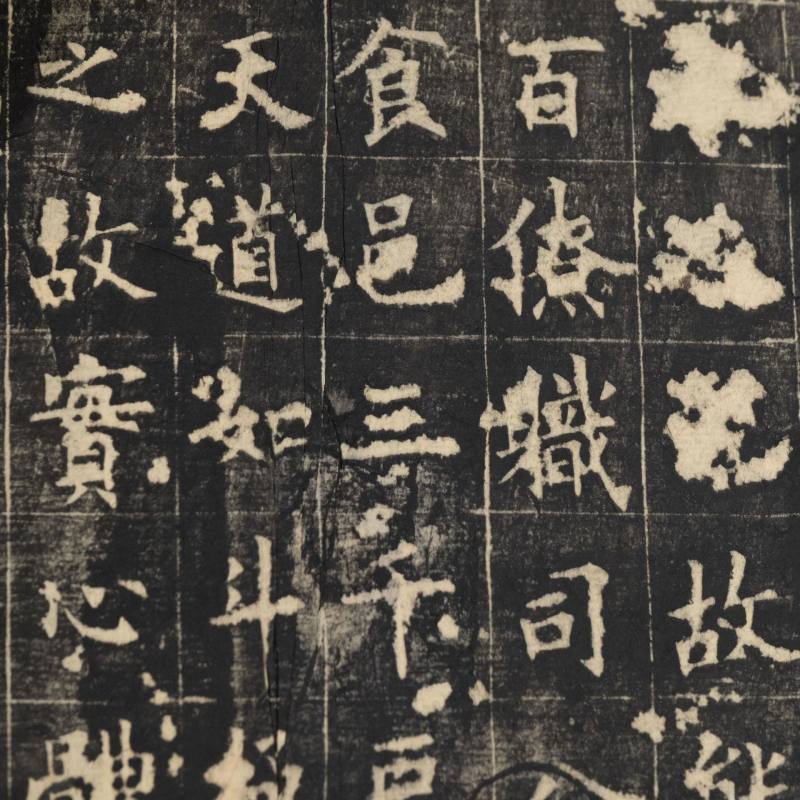 故能
百僚職司
食邑三千戶
天道如斗
之故實心體